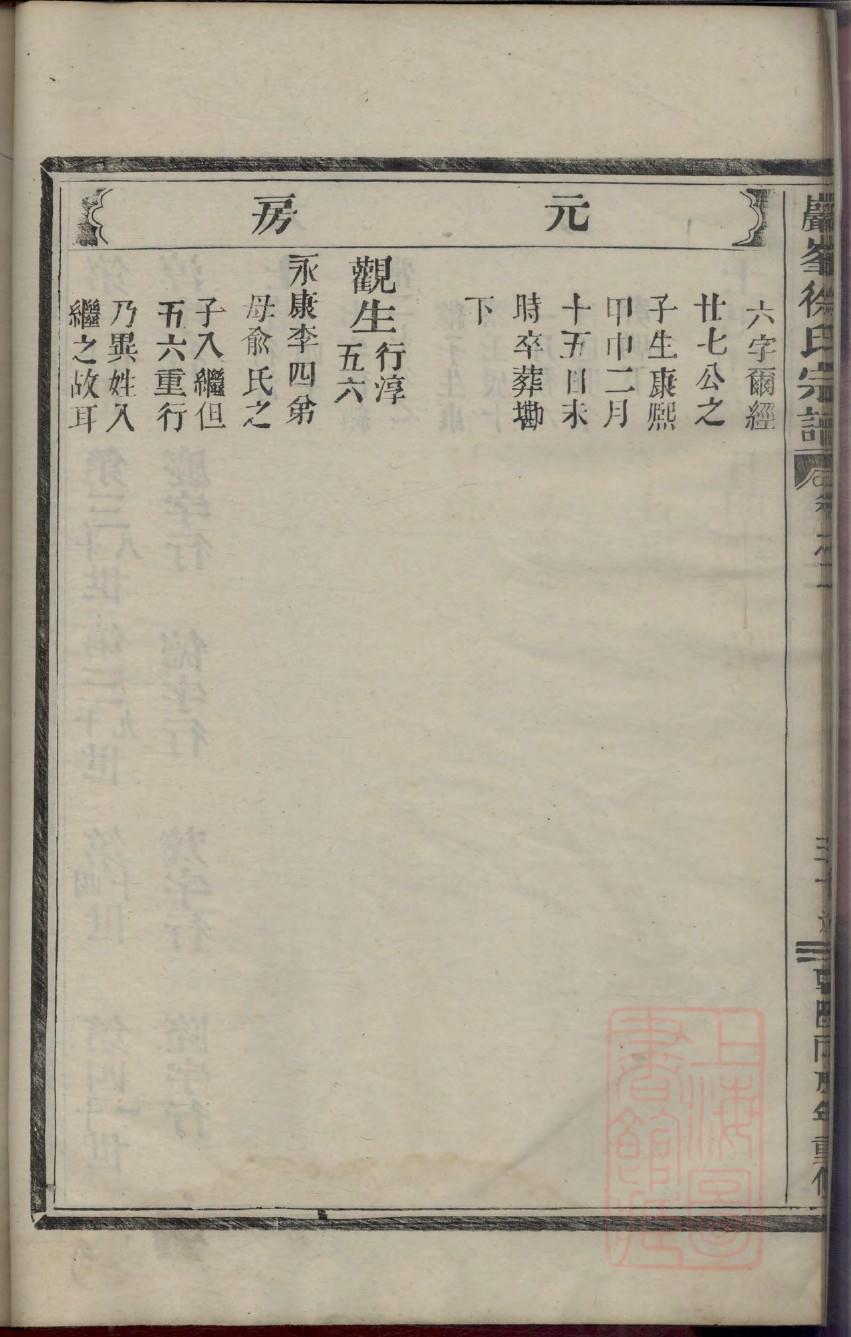 巖峯徐氏宗譜
元房
六字爾經
廿七公之
子生康熙
甲申二月
十五日未
時卒葬墈
下
觀生行淳五六
永康李四弟
母俞氏之
子入繼但
五六重行
乃異姓入
繼之故耳
上海圖書館藏